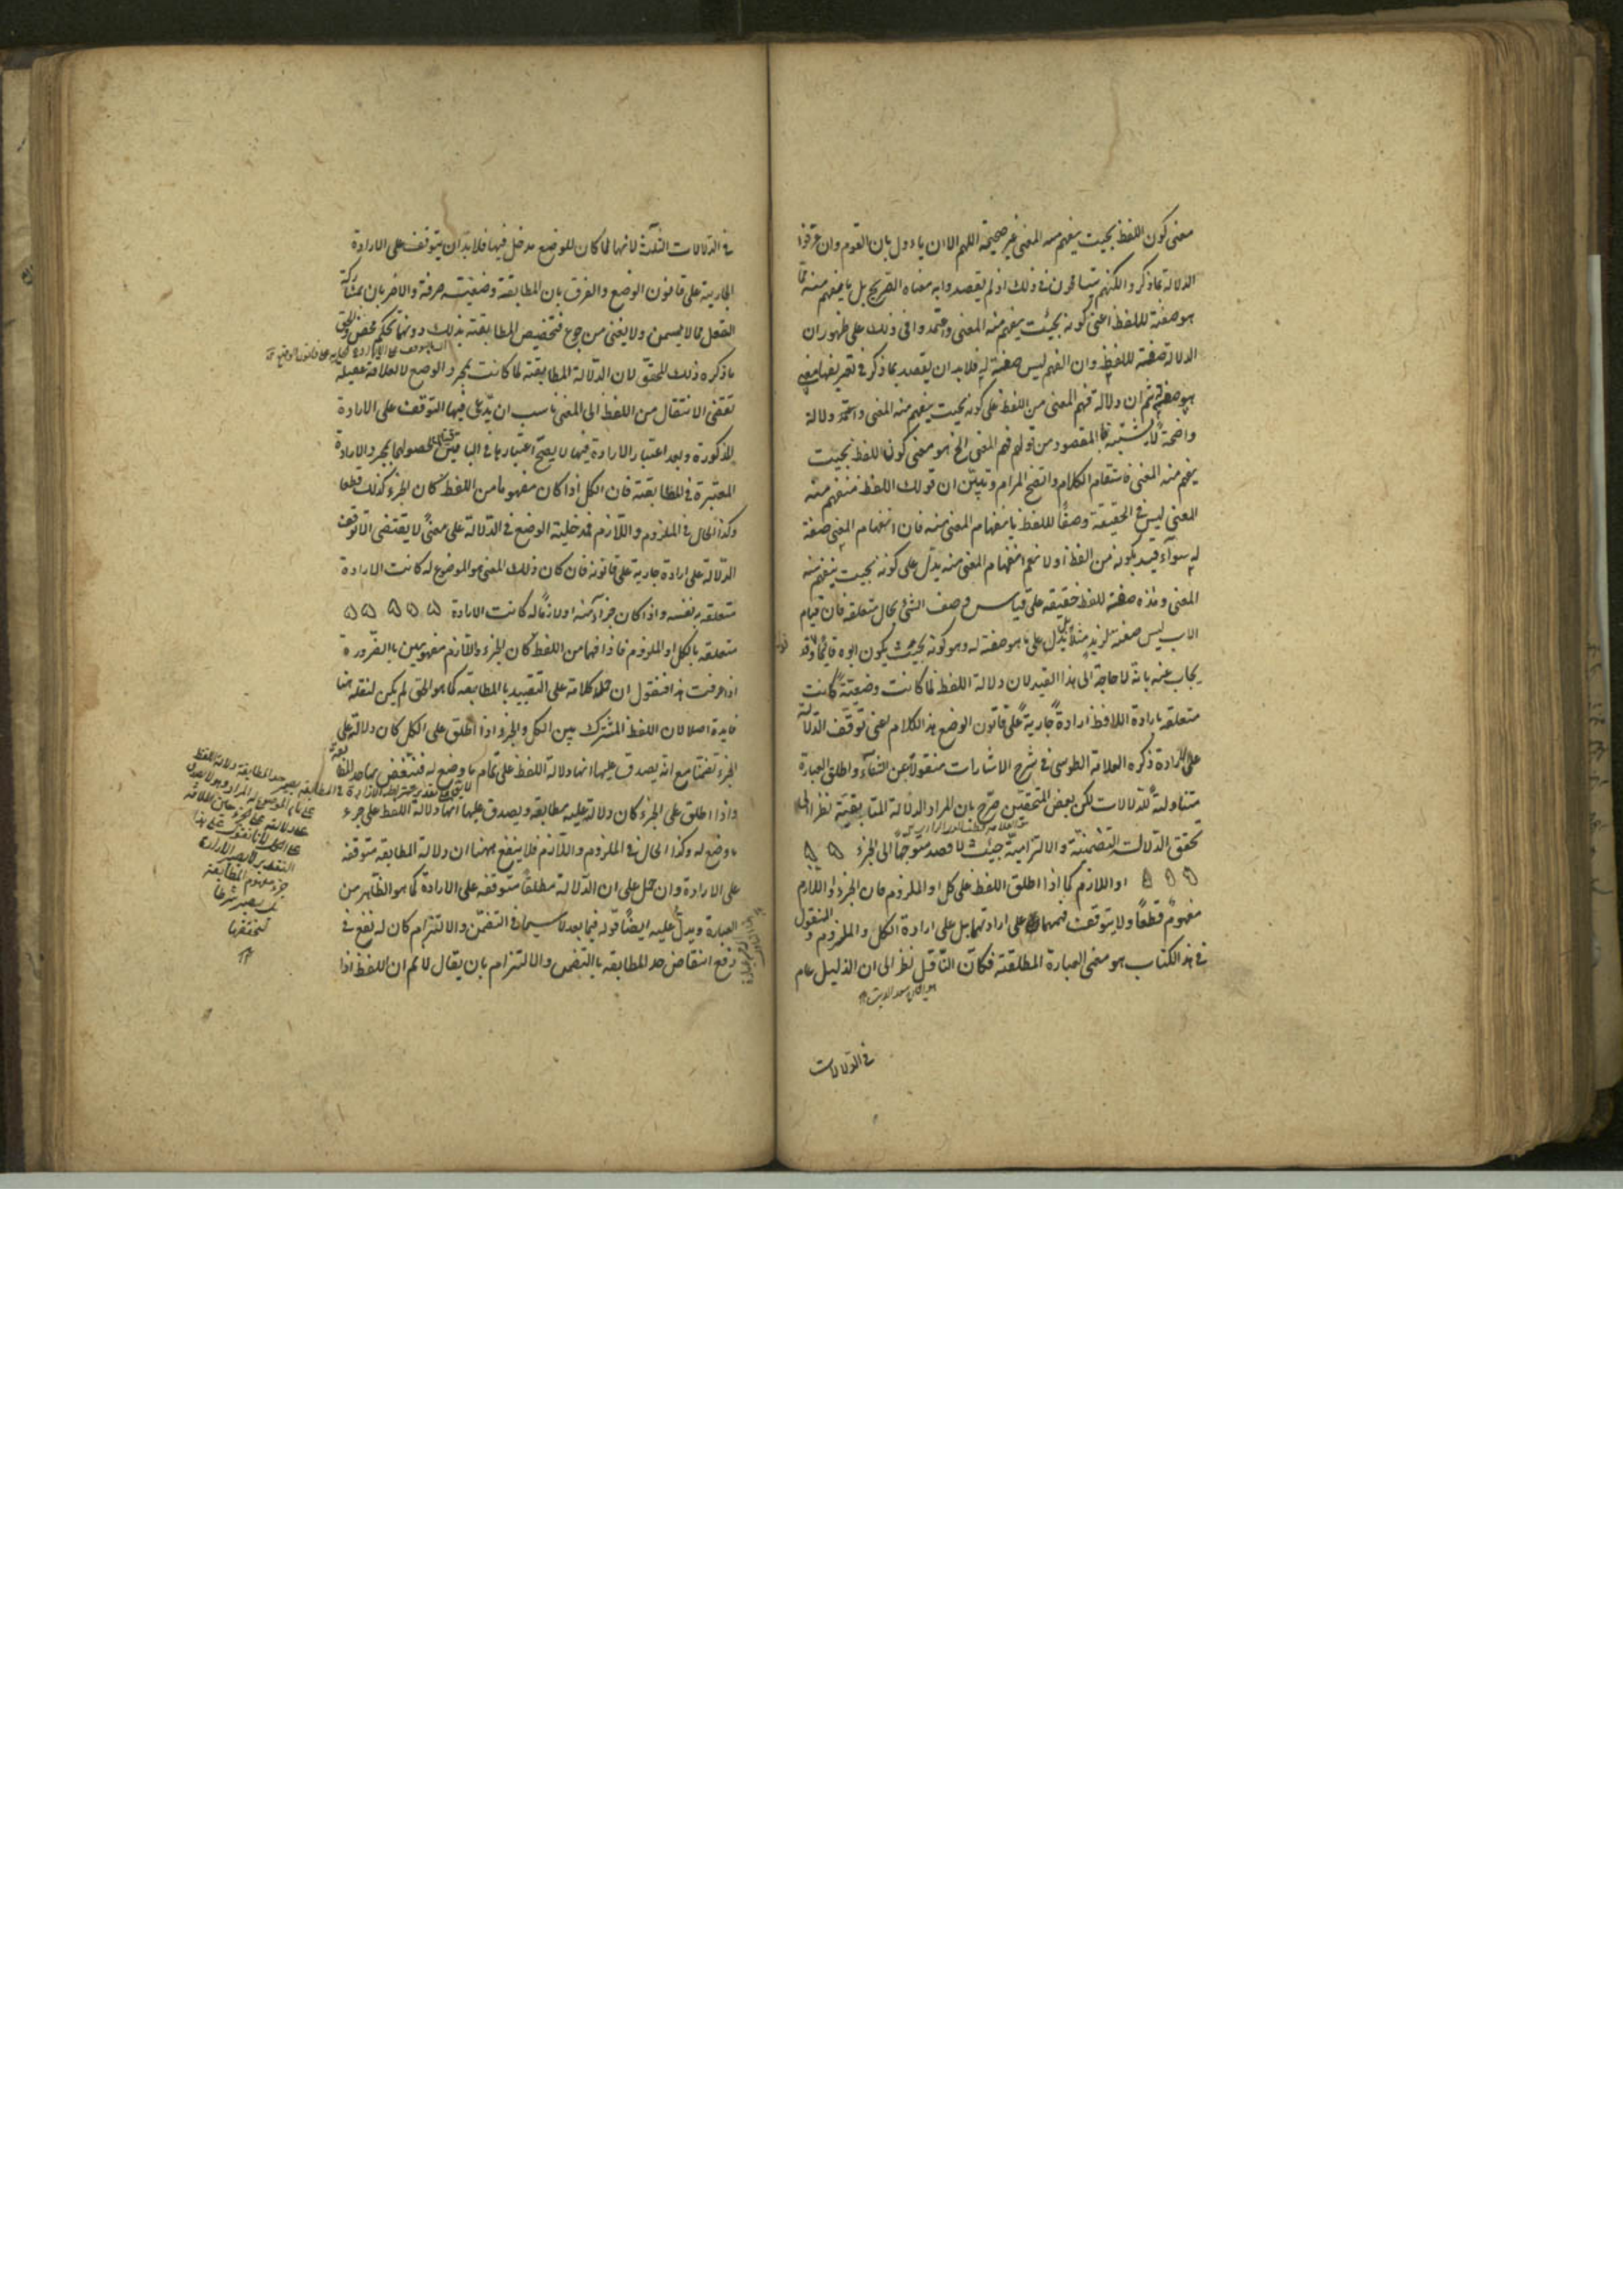 معنى كون اللفظ بحيث يفهم منه المعنى غير صحيحة اللهم الا ان يأول بان القوم وان عرفوا
الدلالة بما ذكر والكنهم يتسامحون في ذلك اذ لم يقصدوا به معناه الصريح بل ما يفهم منه مما
هو صفة للفظ اعنى كونه بحيث يفهم منه المعنى واعتمدوا فى ذلك على ظهور ان
الدلالة صفة للفظ وان الفهم ليس صفة له فلا بد ان يقصد بما ذكر فى تعريفها معنى
هو صفة ثم ان دلالة فهم المعنى من اللفظ على كونه بحيث يفهم منه المعنى واضحة دلالة
واضحة لا يشتبه فالمقصود من قولهم فهم المعنى الخ هو معنى كون اللفظ بحيث
يفهم منه المعنى فاستقام الكلام واتضح المرام وتبين ان قولك اللفظ منفهم منه
المعنى ليس فى الحقيقة وصفا للفظ بانفهام المعنى منه فان انفهام المعنى صفة
له سواء قيد بكونه من اللفظ او لا نعم انفهام المعنى منه يدل على كونه بحيث ينفهم منه
المعنى وهذه صفة للفظ حقيقة على قياس وصف الشئ بحال متعلقه فان قيام
الاب ليس صفة لزيد مثلا بل يدل على ما هو صفة له وهو كونه بحيث يكون ابوه قائما وقد
يجاب عنه بانه لا حاجة الى هذا القيد لان دلالة اللفظ لما كانت وضعية كانت
متعلقة بارادة اللافظ ارادة جارية على قانون الوضع هذا الكلام اعنى توقف الدلالة
على الارادة ذكره العلامة الطوسى فى شرح الاشارات منقولا عن الشفاء واطلق العبارة
متناولة للدلالات لكن بعض المحققين صرح بان المراد الدلالة المطابقية نظرا الى
تحقق الدلالة التضمنية والالتزامية حيث لا قصد متوجها الى الجزء
او اللازم كما اذا اطلق اللفظ على كل او الملزوم فان الجزء او اللازم
مفهوم قطعا ولا يتوقف فهمهما على ارادتهما بل على ارادة الكل والملزوم والمنقول
فى هذا الكتاب هو معنى العبارة المطلقة فكان الناقل نظر الى ان الدليل عام
فى الدلالات
فى الدلالات الثلث لانها لما كان للوضع مدخل فيها فلا بد ان يتوقف على الارادة
الجارية على قانون الوضع والفرق بان المطابقة وضعية صرفة والاخريان بمشاركة
العقل مما لا يسمن ولا يغنى من جوع فتخصيص المطابقة بذلك دونهما تحكم محض والحق
ما ذكره ذلك المحقق لان الدلالة المطابقة لما كانت بمجرد الوضع لا لعلاقة عقلية
تقتضى الانتقال من اللفظ الى المعنى ناسب ان يدعى فيها التوقف على الارادة
المذكورة وبعد اعتبار الارادة فيها لا يصح اعتبارها فى الباقيتين لحصولهما بمجرد الارادة
المعتبرة فى المطابقة فان الكل اذا كان مفهوما من اللفظ كان الجزء كذلك قطعا
وكذا الحال فى الملزوم واللازم فمدخلية الوضع فى الدلالة على معنى لا يقتضى الا توقف
الدلالة على ارادة جارية على قانونه فان كان ذلك المعنى هو الموضوع له كانت الارادة
متعلقة بنفسه واذا كان جزأ منه او لازما له كانت الارادة
متعلقة بالكل او الملزوم فاذا فهما من اللفظ كان الجزء واللازم مفهومين بالضرورة
اذا عرفت هذا فنقول ان حمل كلامه على التقييد بالمطابقة كما هو الحق لم يكن لنقله هنا
فايدة اصلا لان اللفظ المشترك بين الكل والجزء اذا اطلق على الكل كان دلالته على
الجزء تضمنا مع انه يصدق عليها انها دلالة اللفظ على تمام ما وضع له فينتقض بها حد المطابقة
واذا اطلق على الجزء كان دلالته عليه مطابقة ويصدق عليها انها دلالة اللفظ على جزء
ما وضع له وكذا الحال فى الملزوم واللازم فلا ينفع ههنا ان دلالة المطابقة متوقفة
على الارادة وان حمل على ان الدلالة مطلقا متوقفة على الارادة كما هو الظاهر من
العبارة ويدل عليه ايضا قوله فيما بعد لا سيما فى التضمن والالتزام كان له نفع فى
دفع انتقاض حد المطابقة بالتضمن والالتزام بان يقال لا نم ان اللفظ اذا